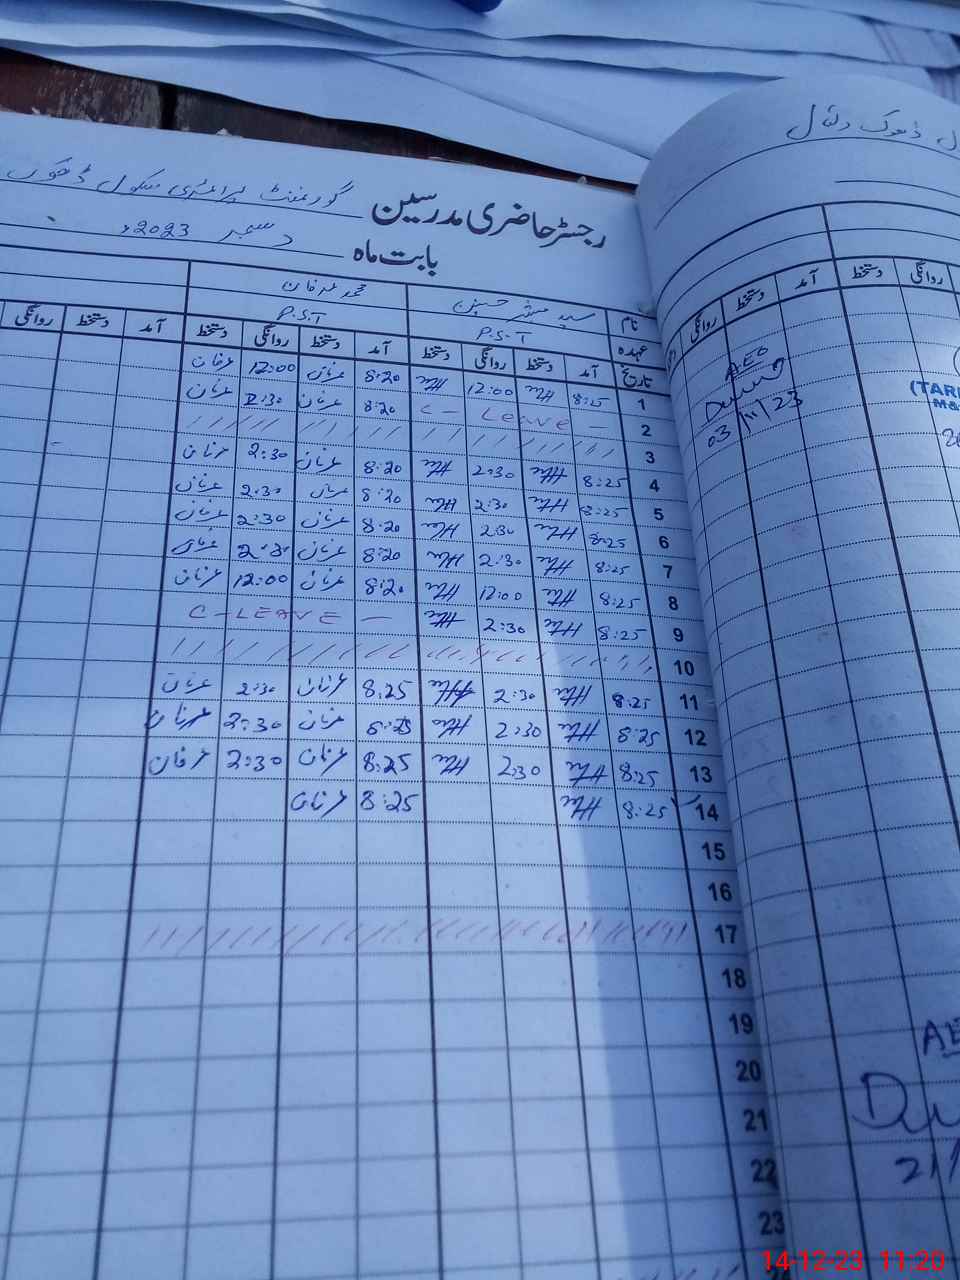 رجسٹر حاضری مدرسین گورنمنٹ پرائمری سکول ڈھوک
بابت ماہ دسمبر 2023ء
نام سید حسین محمد عرفان
عہدہ P.S.T P.S.T
تاریخ آمد دستخط روانگی دستخط آمد دستخط روانگی دستخط آمد دستخط روانگی
1 8:25 12:00 8:20 عرفان 12:00 عرفان
2 C - Leave - 8:20 عرفان 2:30 عرفان
3
4 8:25 2:30 8:20 عرفان 2:30 عرفان
5 8:25 2:30 8:20 عرفان 2:30 عرفان
6 8:25 2:30 8:20 عرفان 2:30 عرفان
7 8:25 2:30 8:20 عرفان 2:30 عرفان
8 8:25 12:00 8:20 عرفان 12:00 عرفان
9 8:25 2:30 C-LEAVE -
10
11 8:25 2:30 8:25 عرفان 2:30 عرفان
12 8:25 2:30 8:25 عرفان 2:30 عرفان
13 8:25 2:30 8:25 عرفان 2:30 عرفان
14 8:25 8:25 عرفان
15
16
17
18
19
20
21
22
23
ڈھوک
آمد دستخط روانگی
دستخط روانگی
AEO
03/11/23
(TAR
14-12-23 11:20